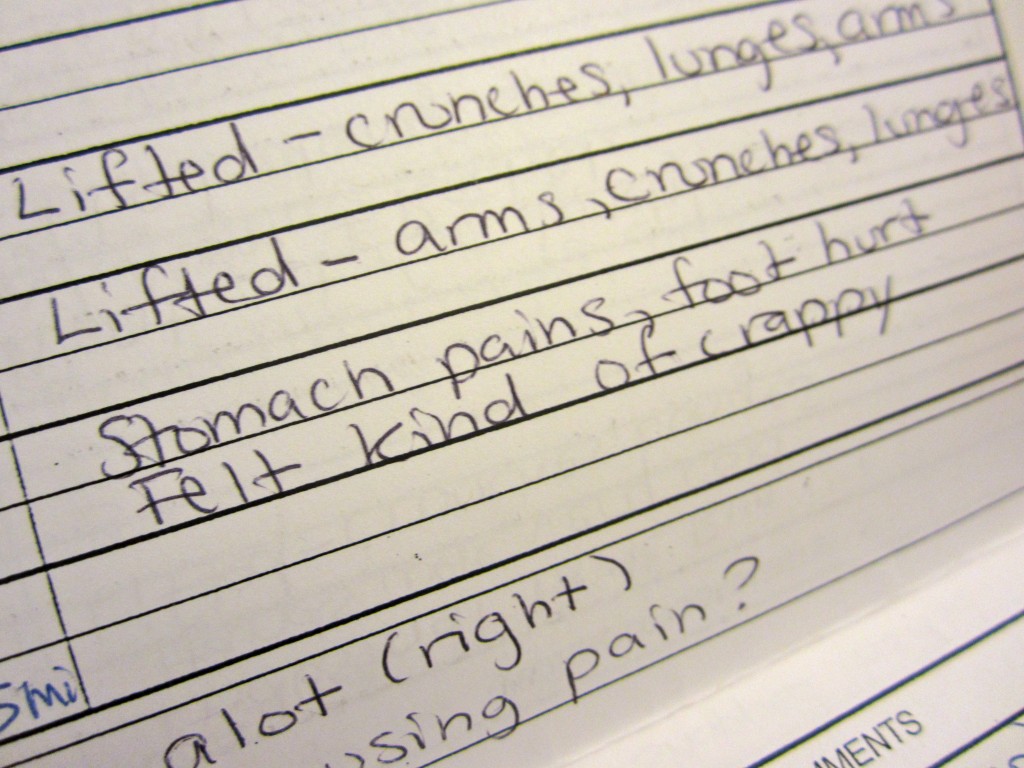 Lifted - crunches, lunges, arms
Lifted - arms, crunches, lunges
Stomach pains, foot hurt
Felt kind of crappy
5mi
alot (right)
using pain?
MMENTS